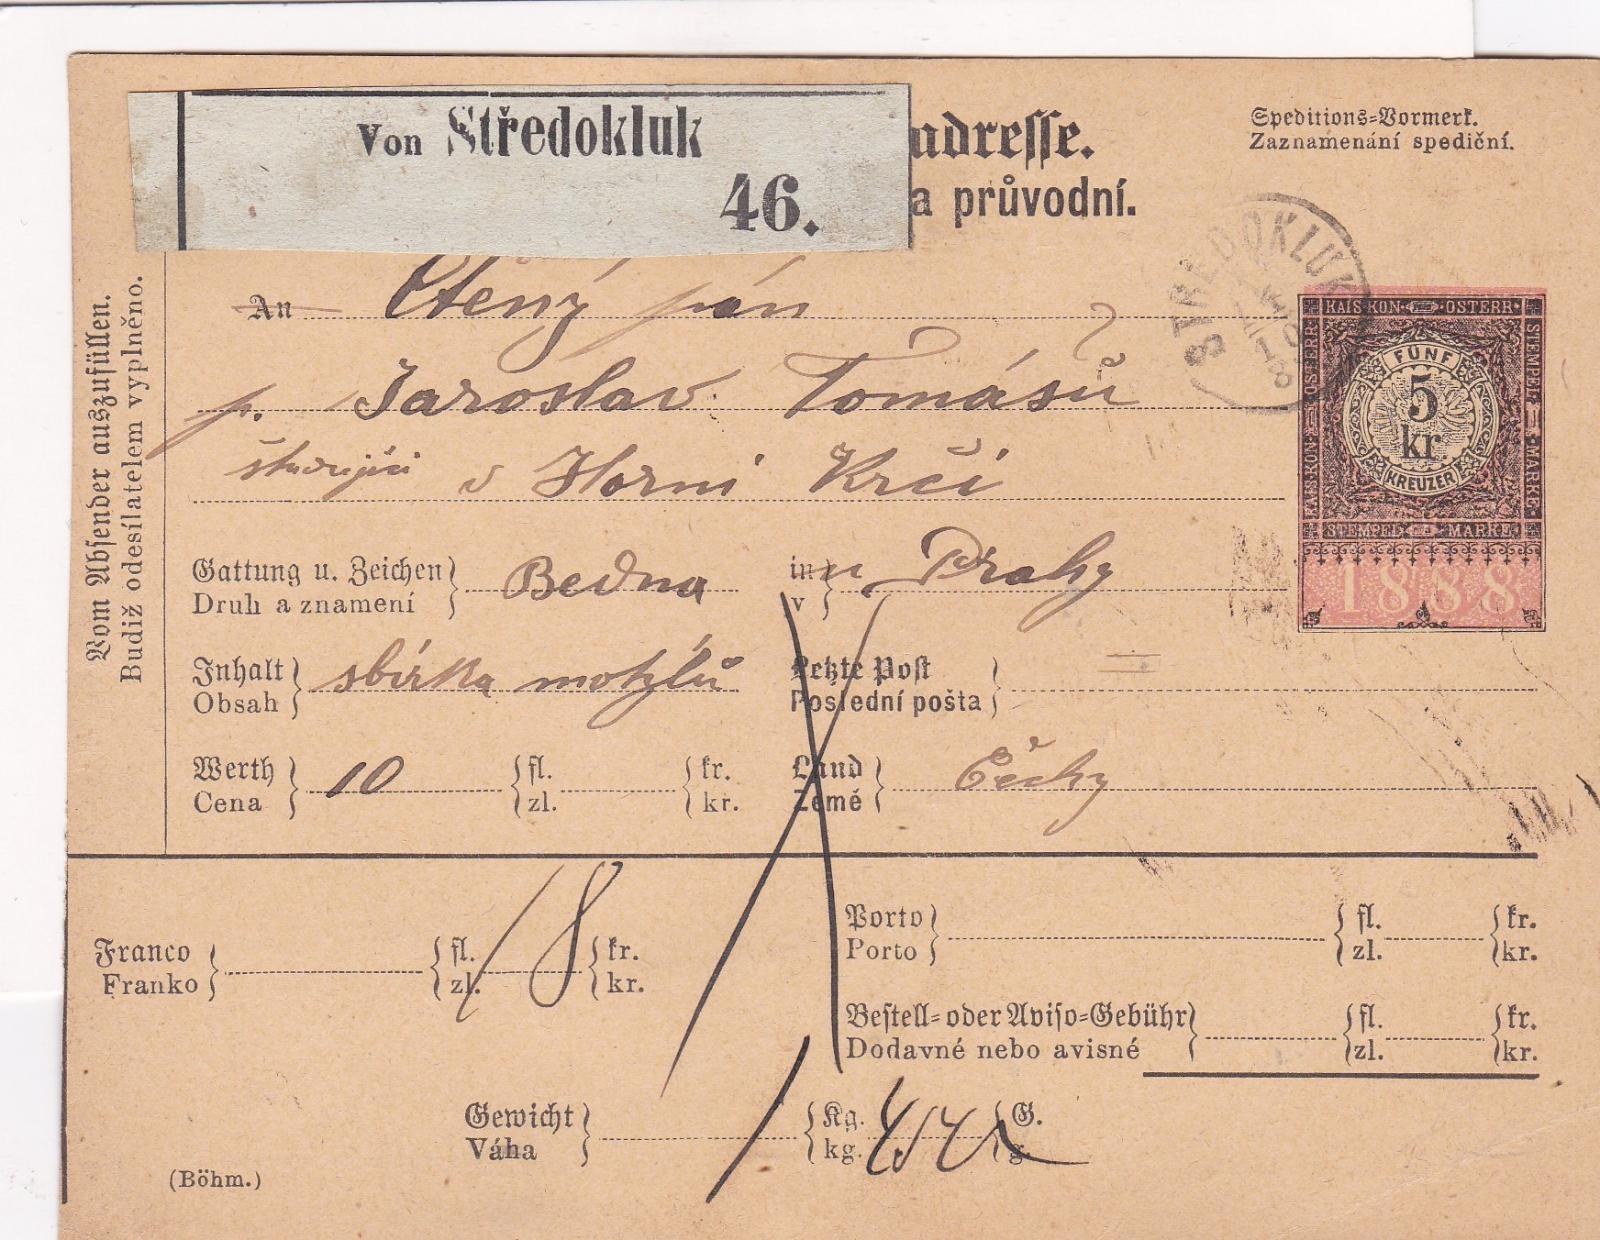 Von Středokluk
46.
adresse.
a průvodní.
Speditions=Vormerk.
Zaznamenání spediční.
STŘEDOKLUK
10
8
KAIS. KÖN. OSTERR.
STEMPEL MARKE
FÜNF
5
kr.
KREUZER
STEMPEL MARKE
1888
Vom Absender auszufüllen.
Budiž odesílatelem vyplněno.
An Ctěný pán
p. Jaroslav Tomásů
v Horni Krči
Gattung u. Zeichen
Druh a znamení
Bedna
in u Prahy
v
Inhalt
Obsah
sbírka motýlů
Letzte Post
Poslední pošta
Werth
Cena
10
fl.
zl.
kr.
kr.
Land
Země
Čechy
Franco
Franko
fl.
zl.
kr.
kr.
Porto
Porto
fl.
zl.
kr.
kr.
Bestell=oder Aviso=Gebühr
Dodavné nebo avisné
fl.
zl.
kr.
kr.
Gewicht
Váha
Kg.
kg.
G.
g.
(Böhm.)